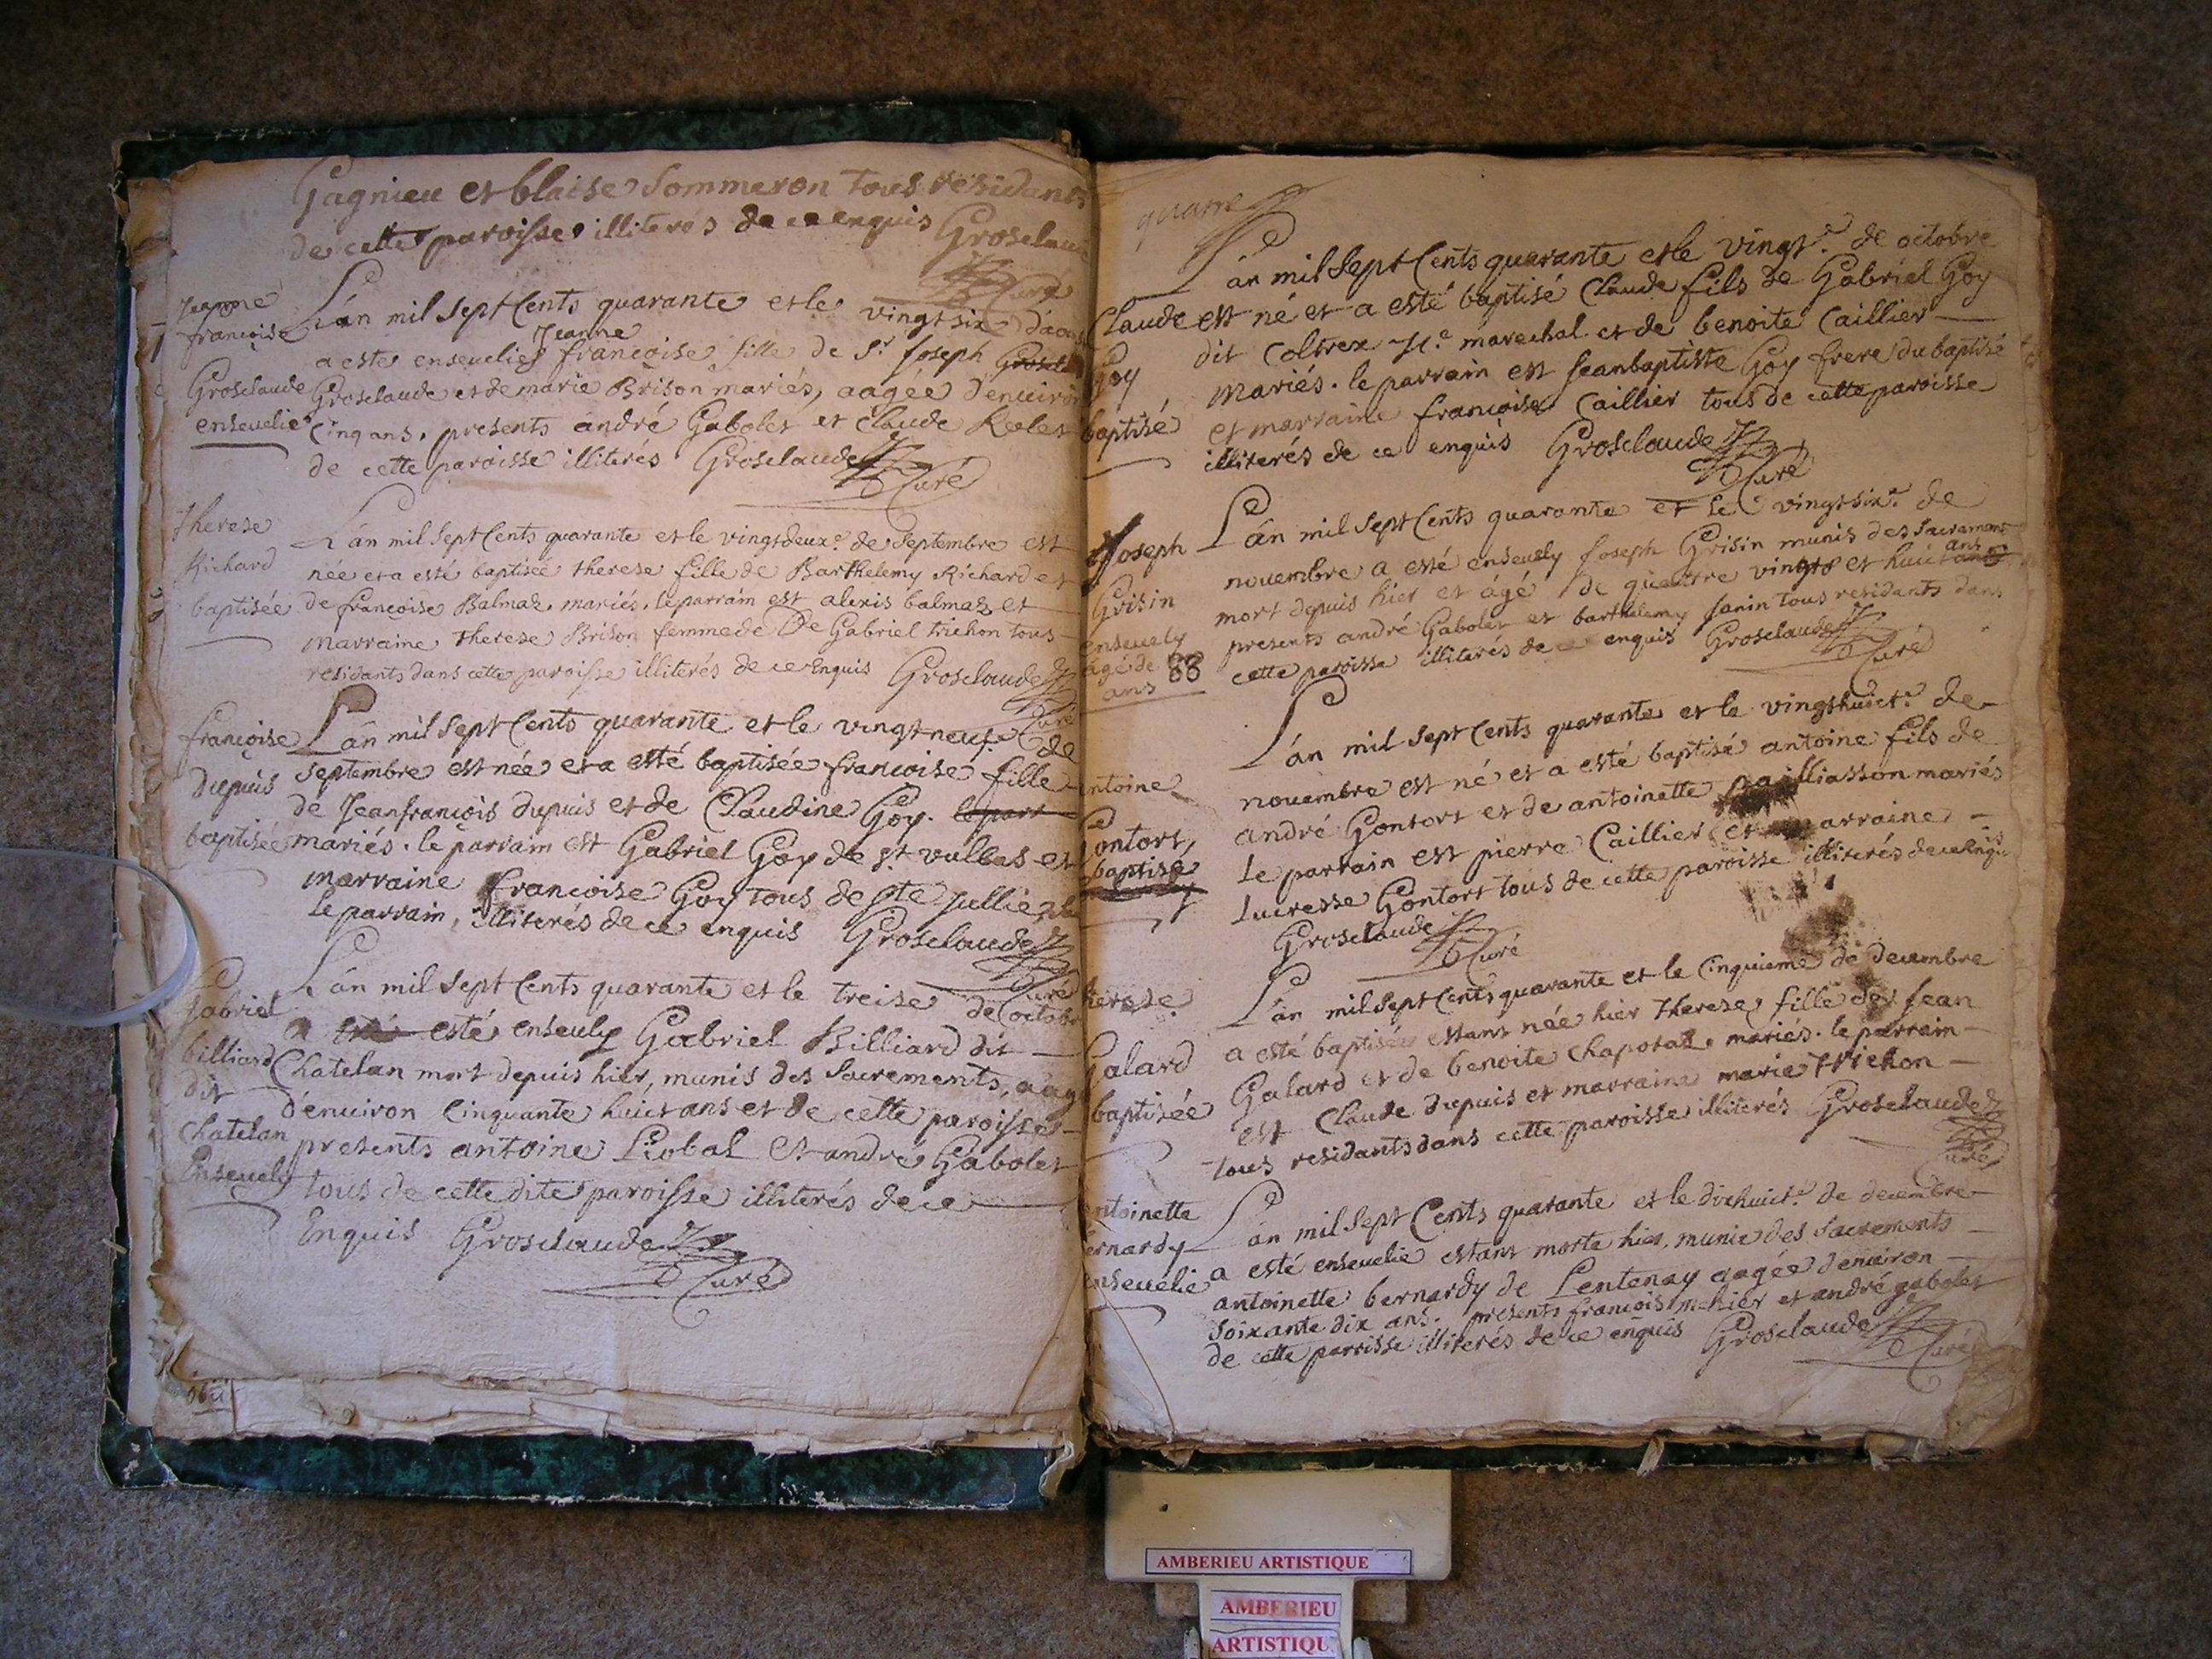 Gagnieu et blaise Sommeron tous residants
de cette paroisse illiterés de ce enquis Grosclaude
Curé
Jeanne
françoise
Grosclaude
ensevelie
L'án mil Sept Cents quarante et le vingt six d'aoust
a esté ensevelie Jeanne françoise fille de Sr Joseph
Grosclaude et de marie Brison mariés, aagée d'enuiron
Cinq ans. presents andré Gabolet et Claude
de cette paroisse illiterés Grosclaude
Curé
therese
Richard
baptisée
L'án mil Sept Cents quarante et le vingtdeuxe. de Septembre est
née et a esté baptisée therese fille de Barthelemy Richard et
de françoise Balmaz. mariés. le parrain est alexis balmaz et
marraine therese Brison femme de De Gabriel trichon tous
residants dans cette paroisse illiterés de ce Enquis Grosclaude
Curé
françoise
Dupuis
baptisée
L'án mil Sept Cents quarante et le vingtneufe de
Septembre est née et a esté baptisée françoise fille
de Jeanfrançois Dupuis et de Claudine Goy. le parr
mariés. le parrain est Gabriel Goy de St vulbas et
marraine françoise Goy tous de Ste Jullie,
le parrain, illiterés de ce enquis Grosclaude
Curé
Gabriel
billiard
dit
Chatelan
Enseuely
L'án mil Sept Cents quarante et le treise de octobre
a esté enseuely Gabriel Billiard dit
Chatelan mort depuis hier, munis des Sacrements, aagé
d'enuiron Cinquante huict ans et de cette paroisse
presents antoine Liobal Et andré Gabolet
tous de cette dite paroisse illiterés de ce
Enquis Grosclaude
Curé
quatre
Claude
Goy
baptisé
L'án mil Sept Cents quarante et le vingte. de octobre
est né et a esté baptisé Claude fils de Gabriel Goy
dit Coltrex Me. marechal et de benoite Caillier
mariés. le parrain est Jeanbaptiste Goy frere du baptisé
et marraine françoise Caillier tous de cette paroisse
illiterés de ce enquis Grosclaude
Curé
Joseph
Grisin
enseuely
agé de 88
ans
L'án mil Sept Cents quarante et le vingtsixe. de
nouembre a esté enseuely Joseph Grisin munis des Sacrament
mort depuis hier et ágé de quattre vingts et huict ans
presents andré Gabolet et barthelemy Janin tous residants dans
cette paroisse illiterés de ce enquis Grosclaude
Curé
antoine
Gontort,
baptisé
L'án mil Sept Cents quarante et le vingthuicte. de
nouembre est né et a esté baptisé antoine fils de
andré Gontort et de antoinette pailliasson mariés
le parrain est pierre Caillier et marraine
lucresse Gontort tous de cette paroisse illiterés de ce Enquis
Grosclaude
Curé
therese
Galard
baptisée
L'án mil Sept Cents quarante et le Cinquieme de Decembre
a esté baptisée estant née hier therese fille de Jean
Galard et de benoite Chapotaz. mariés. le parrain
est Claude Dupuis et marraine marie trichon
tous residants dans cette paroisse illiterés Grosclaude
Curé
antoinette
bernardy
enseuelie
L'án mil Sept Cents quarante et le dixhuicte. de decembre
a esté enseuelie estant morte hier, munie des Sacrements
antoinette bernardy de Lentenay aagée denuiron
Soixante dix ans. presents françois mehier et andré gabolet
de cette parroisse illiterés de ce enquis Grosclaude
Curé
AMBERIEU ARTISTIQUE
AMBERIEU
ARTISTIQU